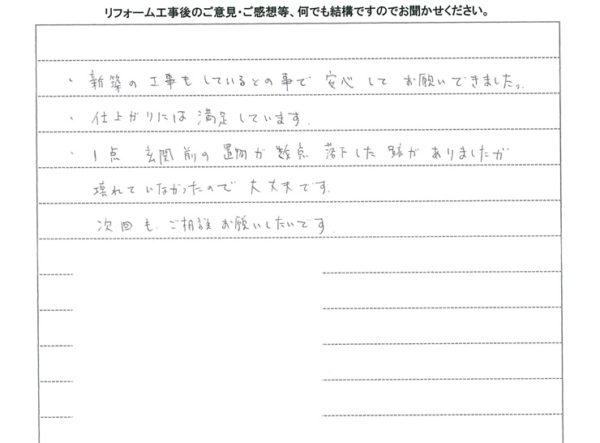 リフォーム工事後のご意見・ご感想等、何でも結構ですのでお聞かせください。
・新築の工事もしているとの事で 安心して お願いできました。
・仕上がりには 満足しています。
・1点 玄関前の 置物が 数点 落下した 跡が ありましたが
壊れていなかったので 大丈夫です。
次回も、ご相談 お願いしたいです